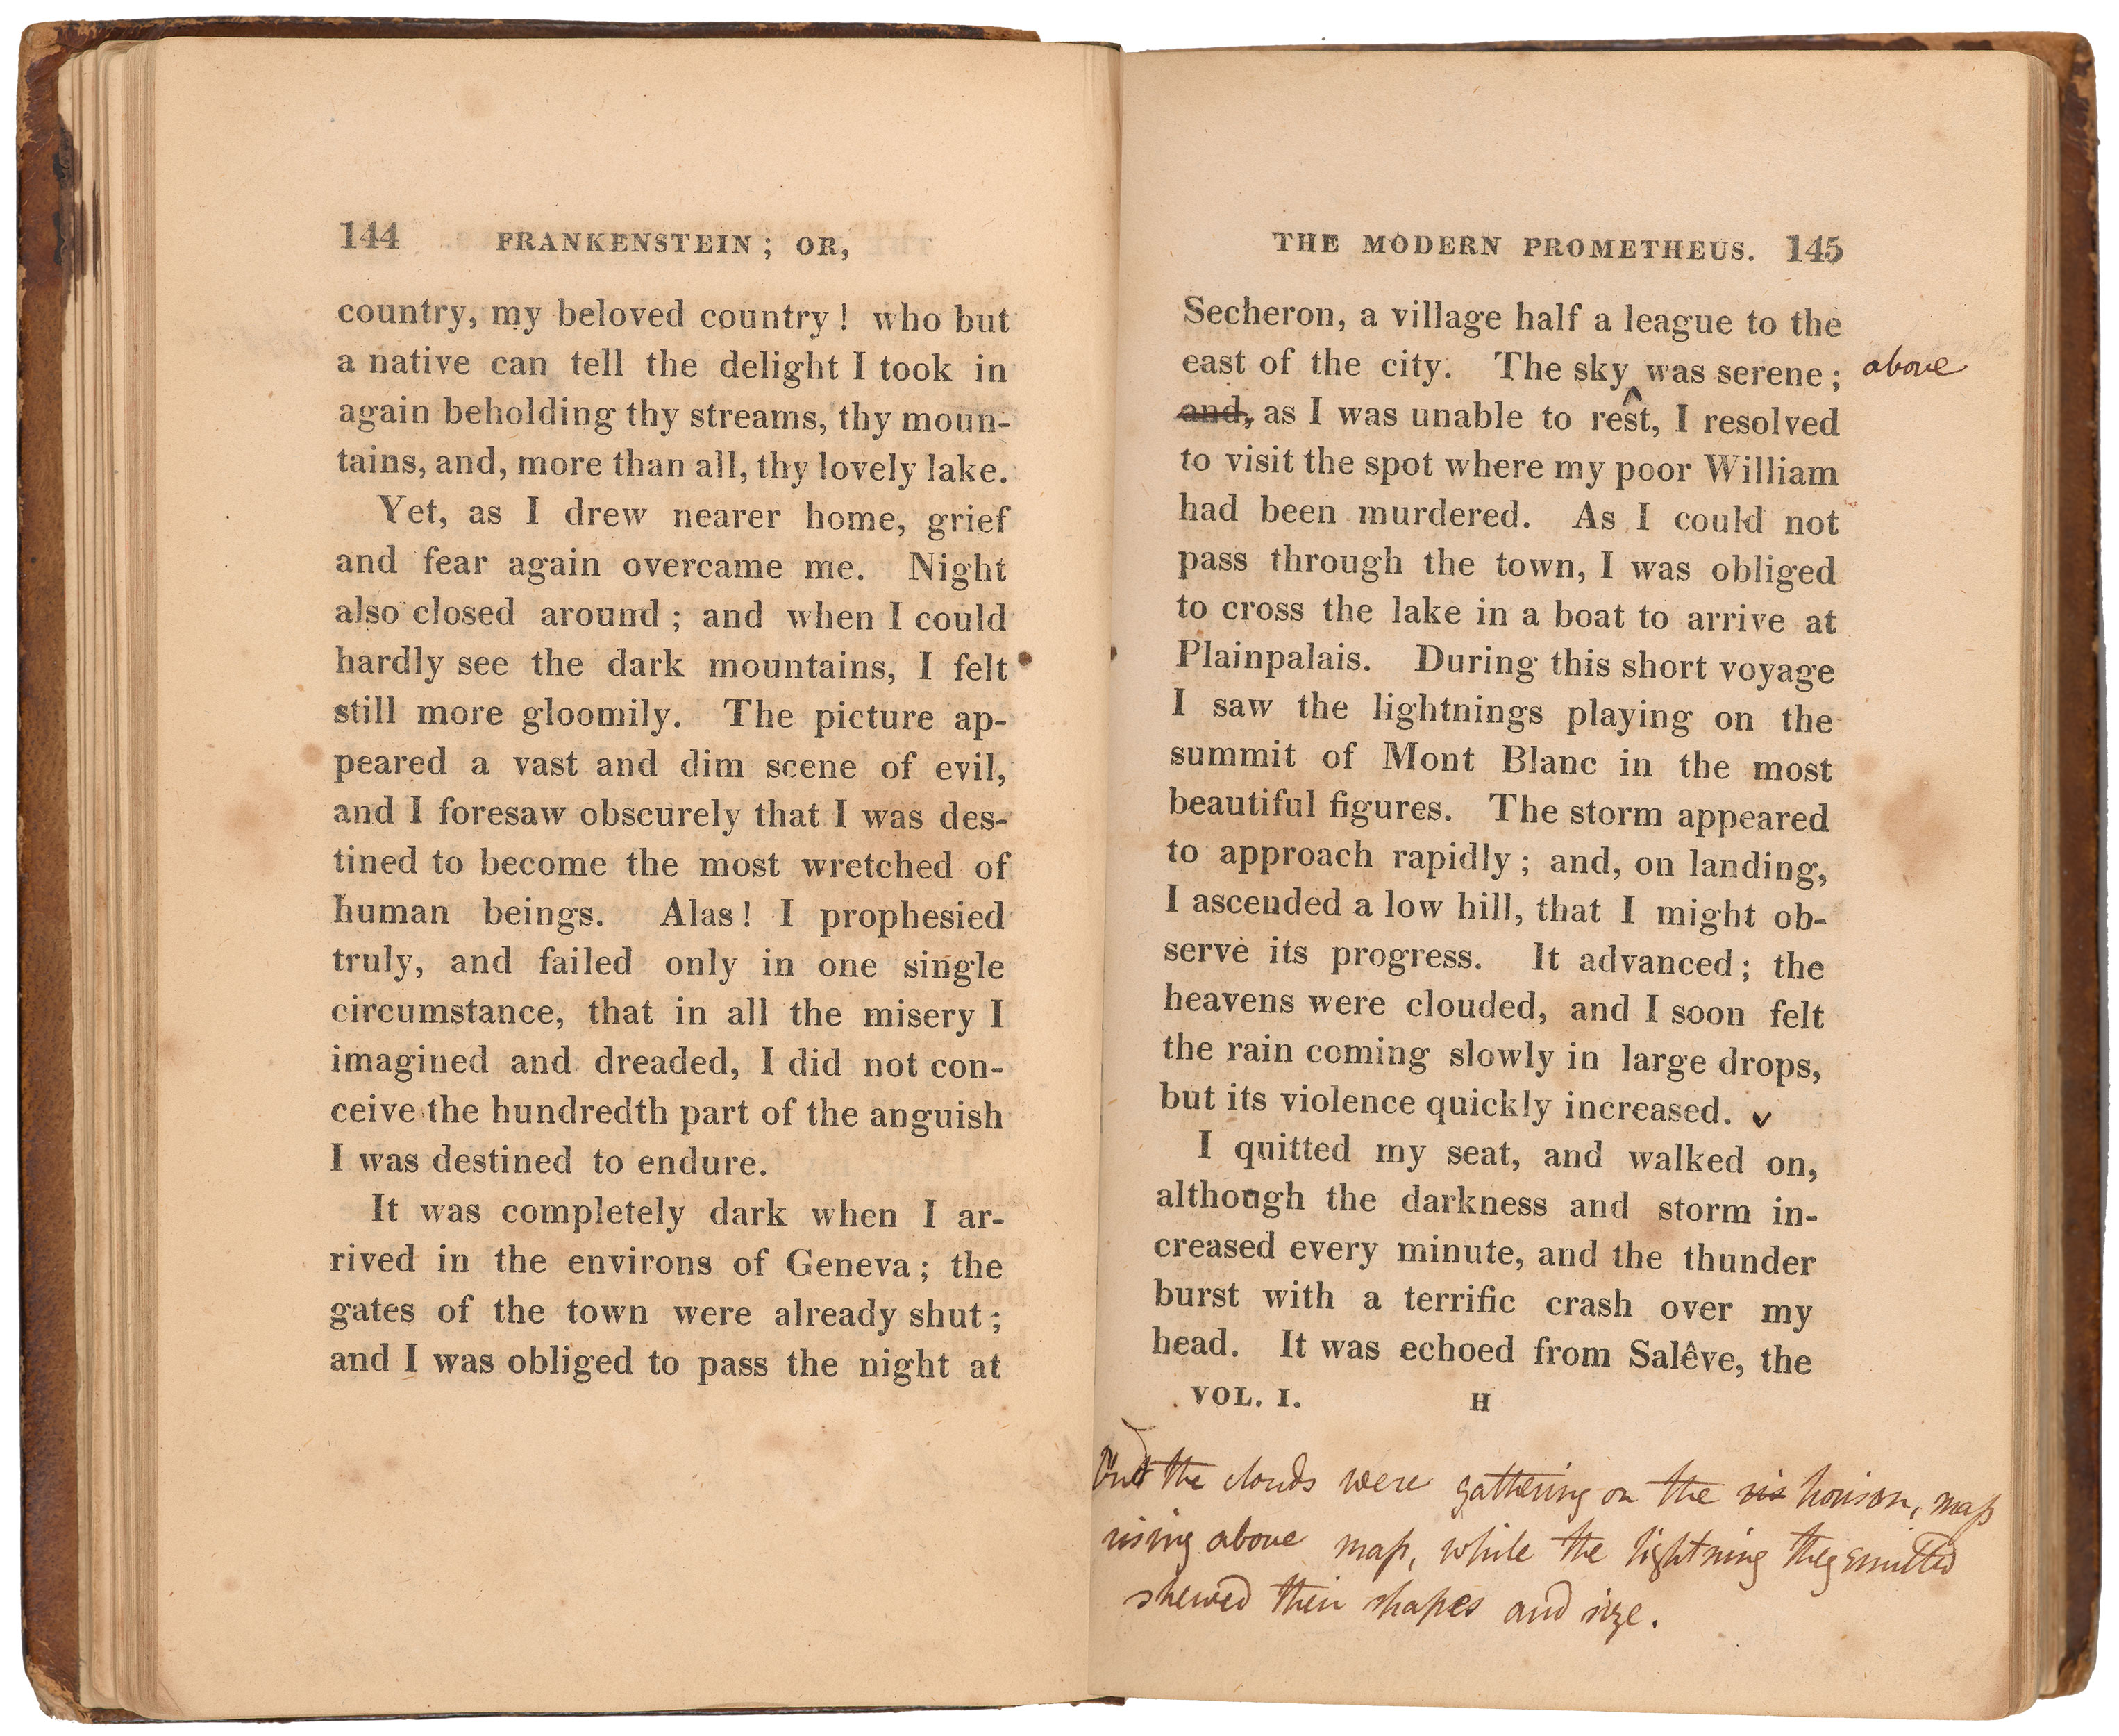 144 FRANKENSTEIN ; OR,
country, my beloved country ! who but
a native can tell the delight I took in
again beholding thy streams, thy moun-
tains, and, more than all, thy lovely lake.
Yet, as I drew nearer home, grief
and fear again overcame me. Night
also closed around ; and when I could
hardly see the dark mountains, I felt
still more gloomily. The picture ap-
peared a vast and dim scene of evil,
and I foresaw obscurely that I was des-
tined to become the most wretched of
human beings. Alas ! I prophesied
truly, and failed only in one single
circumstance, that in all the misery I
imagined and dreaded, I did not con-
ceive the hundredth part of the anguish
I was destined to endure.
It was completely dark when I ar-
rived in the environs of Geneva ; the
gates of the town were already shut ;
and I was obliged to pass the night at
THE MODERN PROMETHEUS. 145
Secheron, a village half a league to the
east of the city. The sky was serene ; above
and, as I was unable to rest, I resolved
to visit the spot where my poor William
had been murdered. As I could not
pass through the town, I was obliged
to cross the lake in a boat to arrive at
Plainpalais. During this short voyage
I saw the lightnings playing on the
summit of Mont Blanc in the most
beautiful figures. The storm appeared
to approach rapidly ; and, on landing,
I ascended a low hill, that I might ob-
serve its progress. It advanced ; the
heavens were clouded, and I soon felt
the rain coming slowly in large drops,
but its violence quickly increased.
I quitted my seat, and walked on,
although the darkness and storm in-
creased every minute, and the thunder
burst with a terrific crash over my
head. It was echoed from Salêve, the
VOL. I. H
the clouds were gathering on the horison, mass
rising above mass, while the lightning they emitted
shewed their shapes and size.